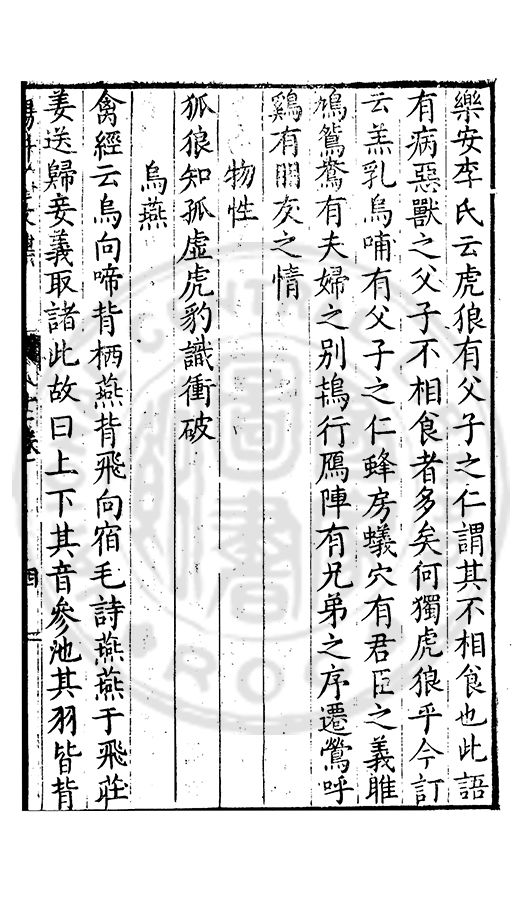 樂安李氏云虎狼有父子之仁謂其不相食也此語
有病惡獸之父子不相食者多矣何獨虎狼乎今訂
云羔乳烏哺有父子之仁蜂房蟻穴有君臣之義雎
鳩鴛鴦有夫婦之别鴇行鴈陣有兄弟之序遷鶯呼
鷄有朋友之情
物性
狐狼知孤虛虎豹識衝破
烏燕
禽經云烏向啼背栖燕背飛向宿毛詩燕燕于飛莊
姜送歸妾義取諸此故曰上下其音參池其羽皆背
四